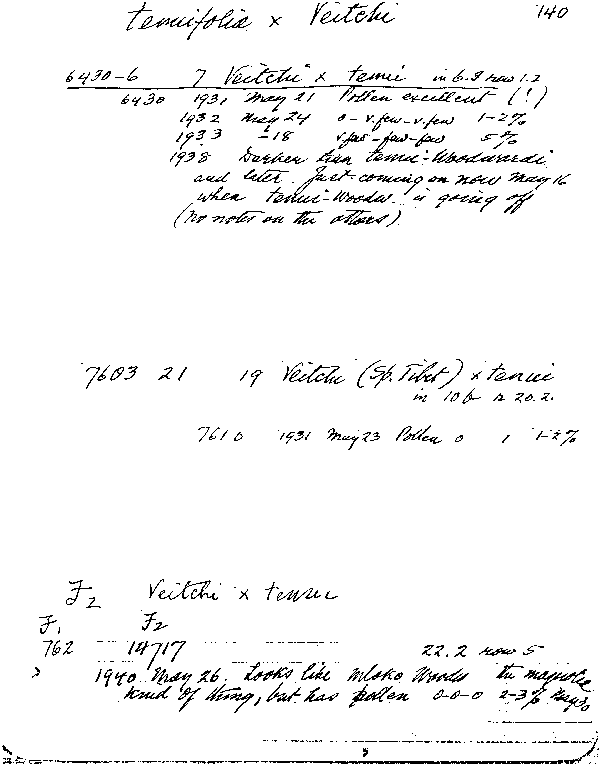 tenuifolia x Veitchi 140
6430-6 7 Veitchi x tenui in 6.9 row 1.2
6430 1931 May 21 Pollen excellent (!)
1932 May 24 0 - v.few - v.few 1-2%
1933 - 18 v.few - few - few 5%
1938 Darker than tenui-Woodwardi
and later. Just coming on now May 16
when tenui-Woodw. is going off
(no notes on the others)
7603 21 19 Veitchi (Sp. Tibet) x tenui
in 10 b r 20.2.
7610 1931 May 23 Pollen 0 1 1-2%
F2 Veitchi x tenui
F1 F2
762 14717 22.2 row 5
1940 May 26. Looks like Mloko Woodw the magnolia
kind of thing, but has pollen 0-0-0 2-3% May 30